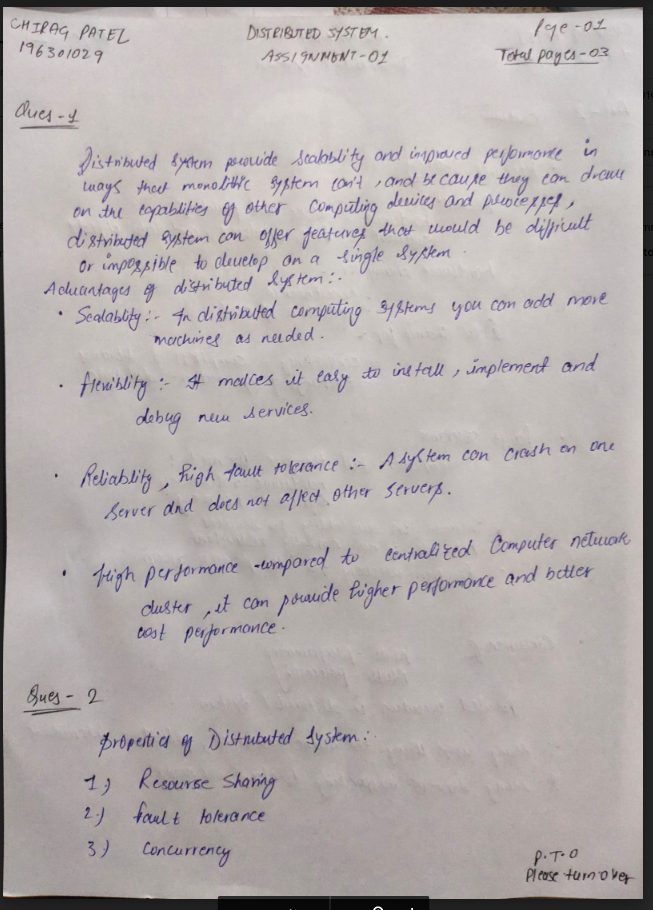 CHIRAG PATEL
196301029
DISTRIBUTED SYSTEM.
ASSIGNMENT-01
Pge-01
Total pages-03
Ques-1
Distributed System provide Scalablity and improved performance in
ways that monolithic system can't, and because they can draw
on the capablities of other computing devices and processes,
distributed system can offer features that would be difficult
or impossible to develop on a single system.
Advantages of distributed System:-
• Scalablity:- In distributed computing systems you can add more
machines as needed.
• flexiblity:- It makes it easy to install, implement and
debug new services.
• Reliablity, high fault tolerance:- A system can crash on one
server and does not affect other servers.
• High performance compared to centralized Computer network
cluster, it can provide higher performance and better
cost performance.
Ques- 2
properties of Distributed System:-
1.) Resourse Sharing
2.) fault tolerance
3.) Concurrency
P.T.O
Please turn over